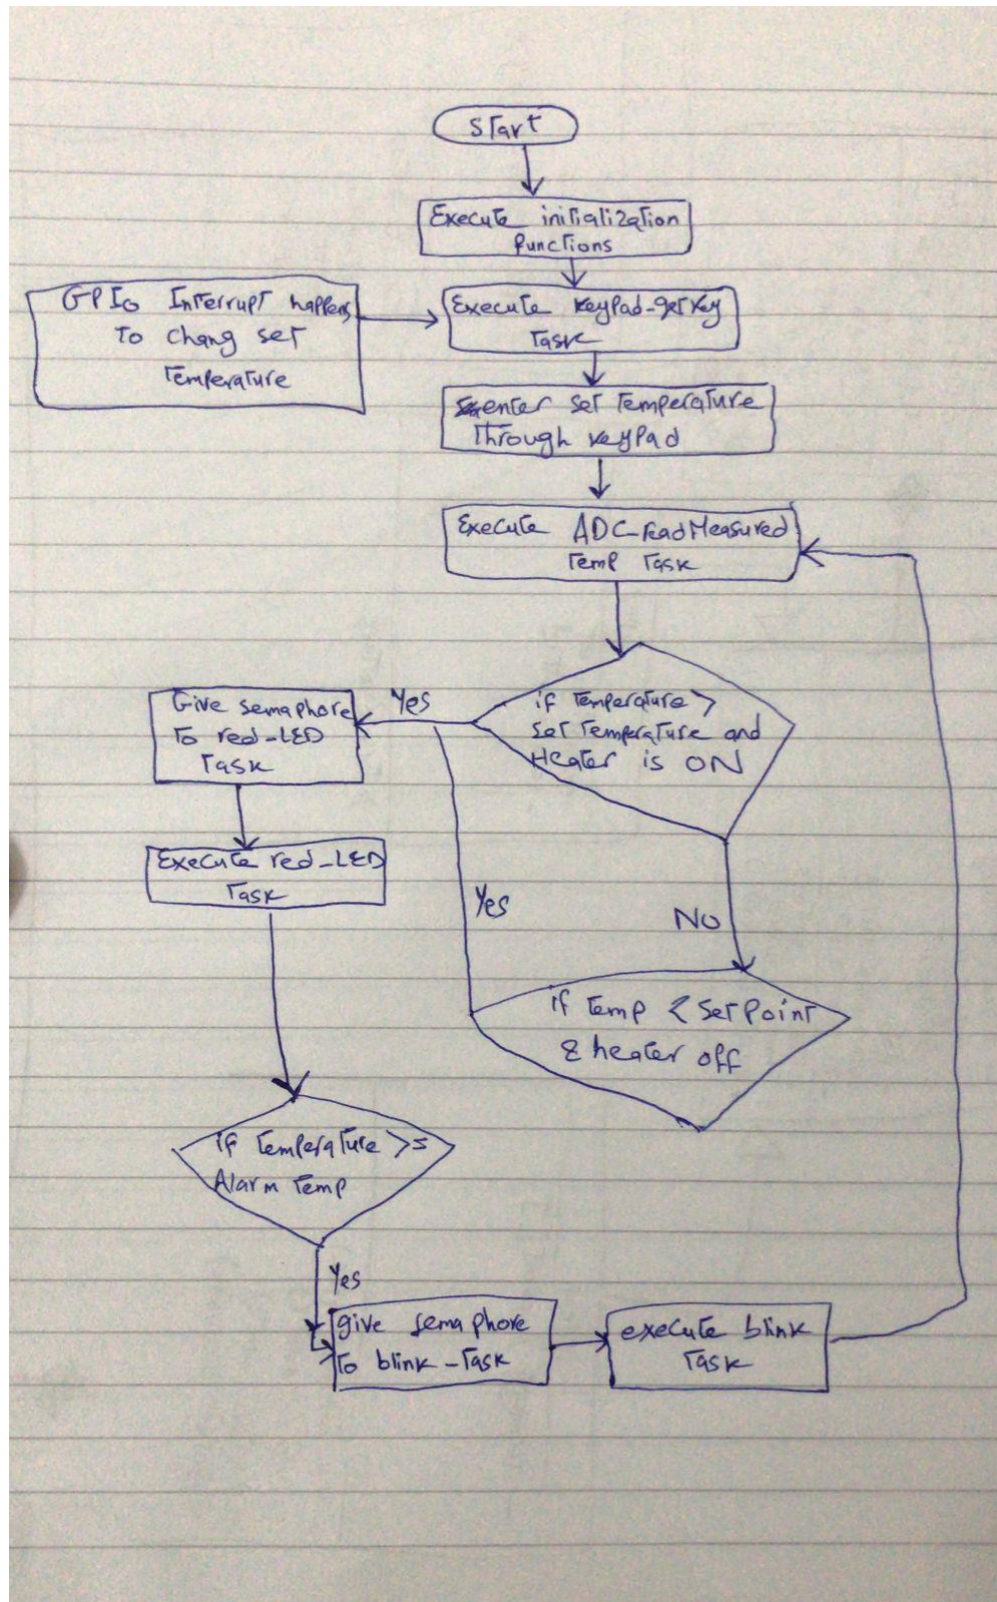 Start
Execute initialization
functions
GPIO Interrupt happens
To chang set
Temperature
Execute keypad-getkey
Task
enter set Temperature
Through keypad
Execute ADC-readMeasured
Temp Task
if Temperature >
set Temperature and
Heater is ON
Yes
Give semaphore
To red-LED
Task
Execute red-LED
Task
Yes
No
if Temp < setpoint
& heater off
if Temperature >=
Alarm Temp
Yes
give semaphore
To blink-Task
execute blink
Task